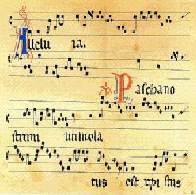 Allelu ia.
Paschano
strum immola
tus est xpi stus